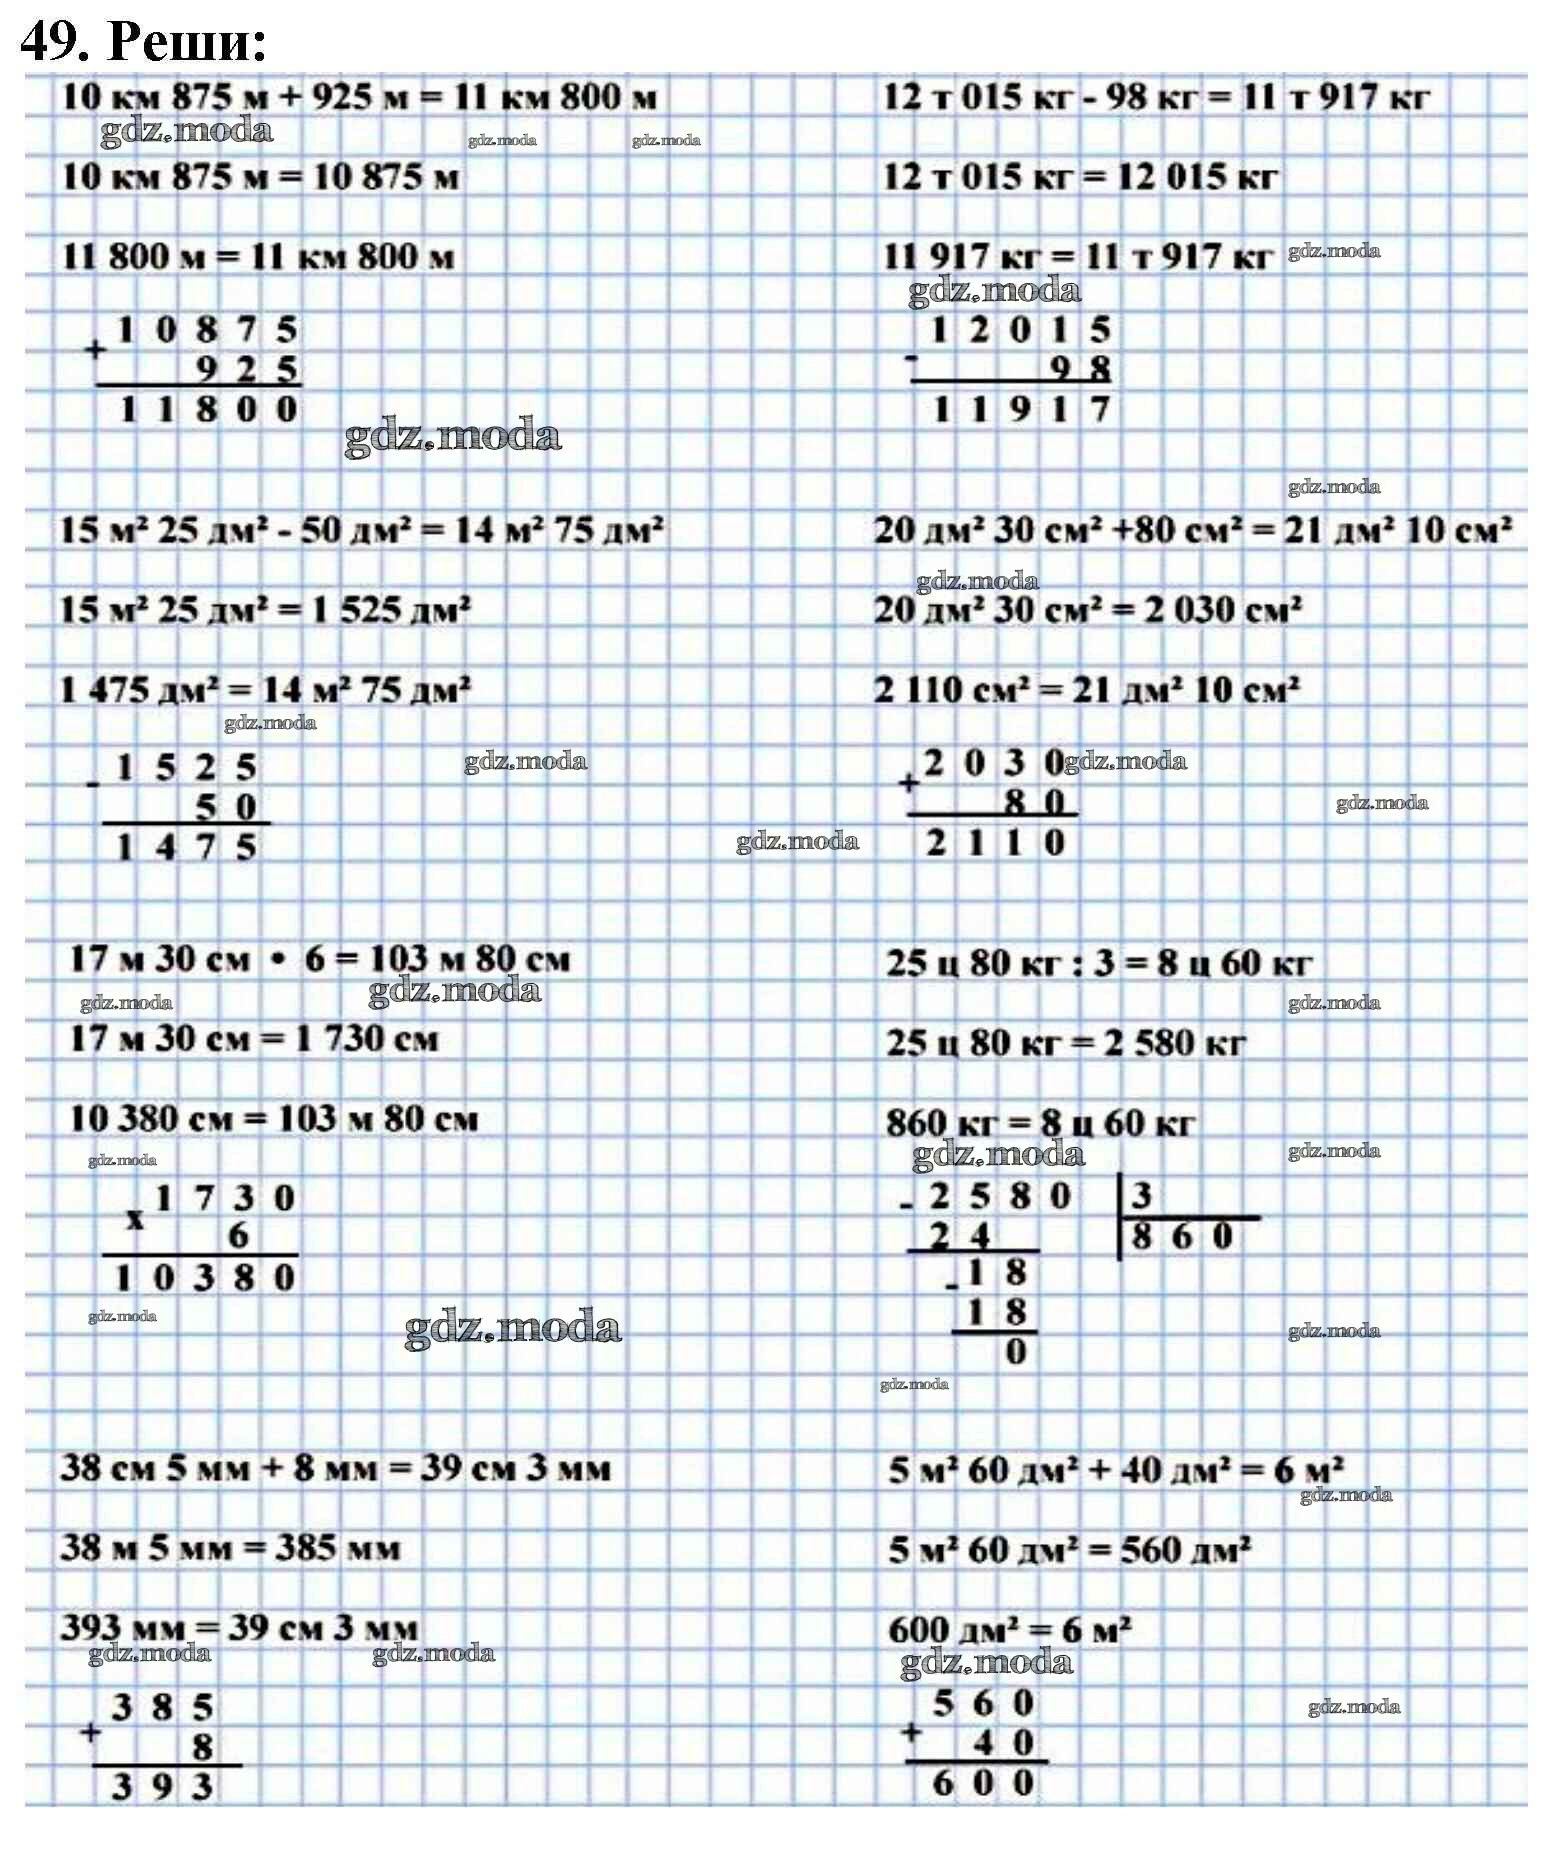 49. Реши:
10 км 875 м + 925 м = 11 км 800 м
gdz.moda gdz.moda gdz.moda
10 км 875 м = 10 875 м
11 800 м = 11 км 800 м
+ 1 0 8 7 5
9 2 5
1 1 8 0 0
gdz.moda
12 т 015 кг - 98 кг = 11 т 917 кг
12 т 015 кг = 12 015 кг
11 917 кг = 11 т 917 кг gdz.moda
gdz.moda
- 1 2 0 1 5
9 8
1 1 9 1 7
gdz.moda
15 м² 25 дм² - 50 дм² = 14 м² 75 дм²
15 м² 25 дм² = 1 525 дм²
1 475 дм² = 14 м² 75 дм²
gdz.moda
- 1 5 2 5
gdz.moda
5 0
1 4 7 5
gdz.moda
20 дм² 30 см² +80 см² = 21 дм² 10 см²
gdz.moda
20 дм² 30 см² = 2 030 см²
2 110 см² = 21 дм² 10 см²
+ 2 0 3 0 gdz.moda
8 0
gdz.moda
2 1 1 0
17 м 30 см • 6 = 103 м 80 см
gdz.moda gdz.moda
17 м 30 см = 1 730 см
10 380 см = 103 м 80 см
gdz.moda
х 1 7 3 0
6
1 0 3 8 0
gdz.moda gdz.moda
25 ц 80 кг : 3 = 8 ц 60 кг
gdz.moda
25 ц 80 кг = 2 580 кг
860 кг = 8 ц 60 кг
gdz.moda gdz.moda
- 2 5 8 0 3
2 4 8 6 0
- 1 8
1 8
gdz.moda
0
gdz.moda
38 см 5 мм + 8 мм = 39 см 3 мм
38 м 5 мм = 385 мм
393 мм = 39 см 3 мм
gdz.moda gdz.moda
+ 3 8 5
8
3 9 3
5 м² 60 дм² + 40 дм² = 6 м²
gdz.moda
5 м² 60 дм² = 560 дм²
600 дм² = 6 м²
gdz.moda
+ 5 6 0
gdz.moda
4 0
6 0 0